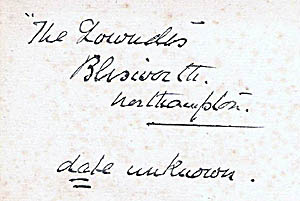 "The Lowndes
Blisworth.
Northampton.
date unknown.